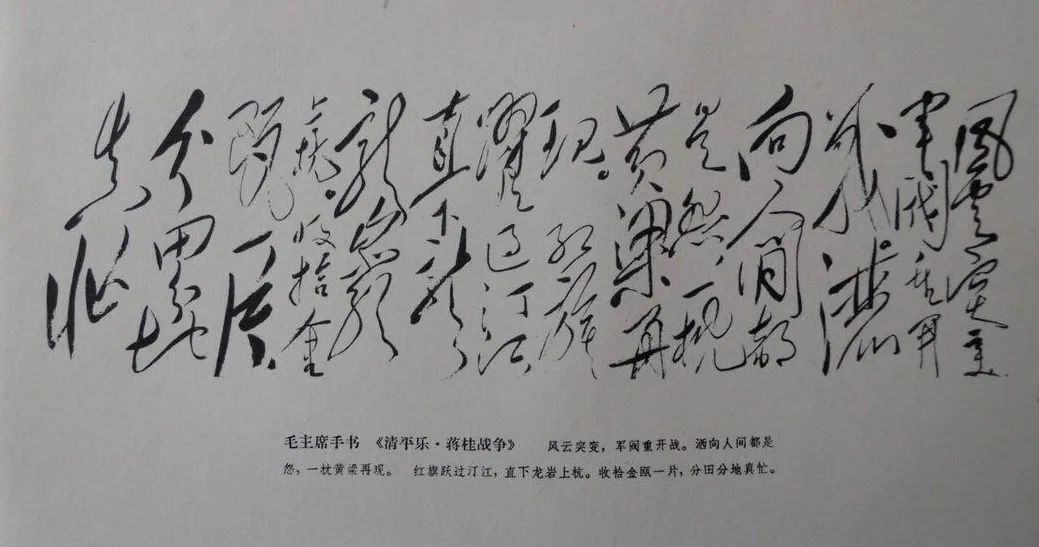 風雲突变
軍閥重開
战。洒
向人间都
是怨,一枕
黄粱再
现。红旗
躍过汀江
直下
龍岩
上杭。收拾金
瓯一片
分田分地
真忙
毛主席手书 《清平乐·蒋桂战争》 风云突变,军阀重开战。洒向人间都是
怨,一枕黄粱再现。 红旗跃过汀江,直下龙岩上杭。收拾金瓯一片,分田分地真忙。